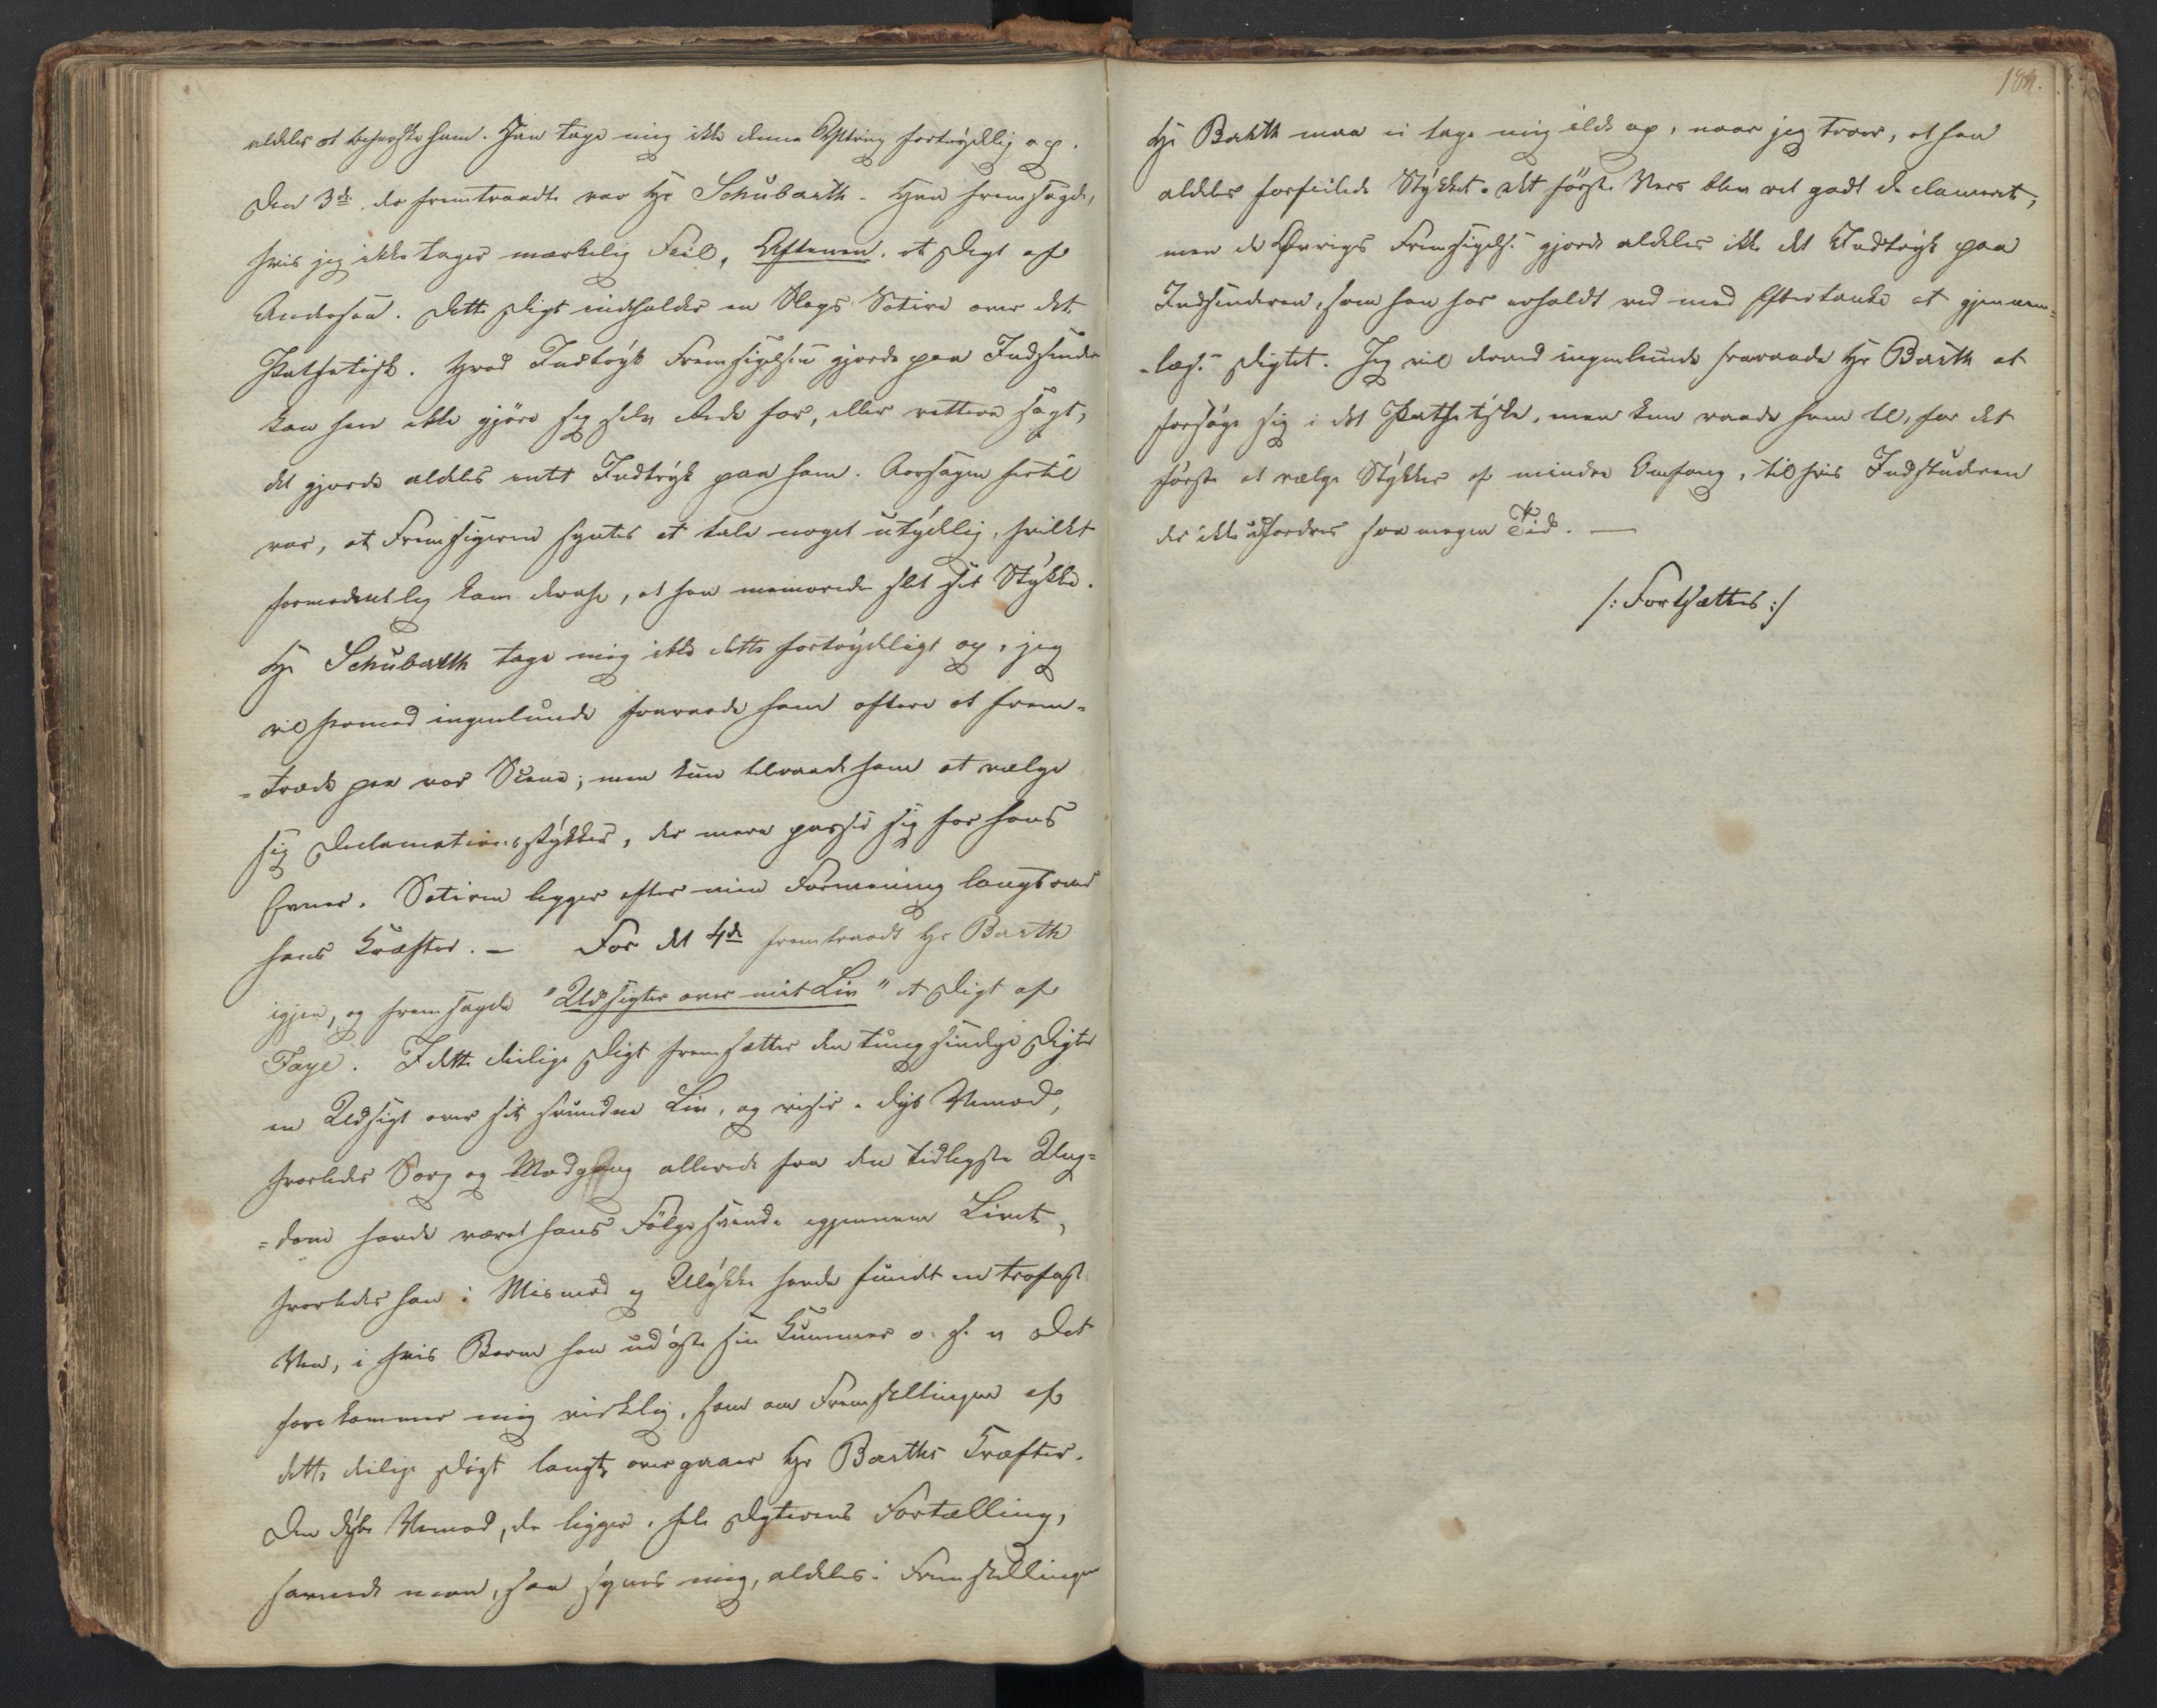 aldeles at beherske ham. Han tage mig ikke denne Yttring fortrydelig op.
Den 3de, der fremtraadte var Hr Schubarth. Han fremsagde,
hvis jeg ikke tager mærkelig Feil, Aftenen, et Digt af
Andersen. Dette Digt indholder en Slags Satire over det
Pathetiske. Hvad Indtryk Fremsigelsen gjorde paa Indsender
kan han ikke gjöre sig selv Rede for, eller rettere sagt,
det gjorde aldeles intet Indtryk paa ham. Aarsagen hertil
var, at Fremsigeren syntes at tale noget utydelig, hvilket
formodentlig kom deraf, at han memorede slet sit Stykke.
Hr Schubarth tage mig ikke dette fortrydeligt op, jeg
vil hermed ingenlunde fraraade ham oftere at frem-
-træde paa vor Scene; men kun tilraade ham at vælge
sig Declamationsstykker, der mere passer sig for hans
Evner. Satiren ligger efter min Formening langt over
hans Kræfter. – For det 4de fremtraadte Hr Barth
igjen, og fremsagde "Udsigter over mit Liv" et Digt af
Faye. I dette deilige Digt fremsætter den tungsindige Digter
en Udsigt over sit svundne Liv, og viser i dyb Vemod,
hvorledes Sorg og Modgang allerede fra den tidligste Ung-
-dom havde været hans Fölgesvende igjennem Livet,
hvorledes han i Mismod og Ulykke havde fundet en trofast
Ven, i hvis Barm han udöste sin Kummer o. s. v Det
forekommer mig virkelig, som om Fremstillingen af
dette deilige Digt langt overgaaer Hr Barths Kræfter.
Den dybe Vemod, der ligger i hele Digterens Fortælling,
savnede man, saa synes mig, aldeles i Fremstillingen
184.
Hr Barth maa ei tage mig ilde op, naar jeg troer, at han
aldeles forfeilede Stykket. Det förste Vers blev vel godt declameret,
men de Övriges Fremsigelse gjorde aldeles ikke det Indtryk paa
Indsenderen, som han har erholdt ved med Eftertanke at gjennem-
-læse Digtet. Jeg vil derved ingenlunde fraraade Hr Barth at
forsöge sig i det Pathetiske, men kun raade ham til, for det
förste at vælge Stykker af mindre Omfang, til hvis Indstuderen
der ikke udfordres saa megen Tid. —
/: Fortsættes :/